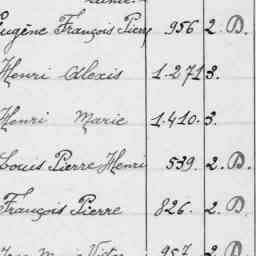 Eugène François Pierre 956 2. D.
Henri Alexis 1.271 3.
Henri Marie 1.410. 3.
Louis Pierre Henri 539. 2. D.
François Pierre 826. 2. D.
957 2. D.